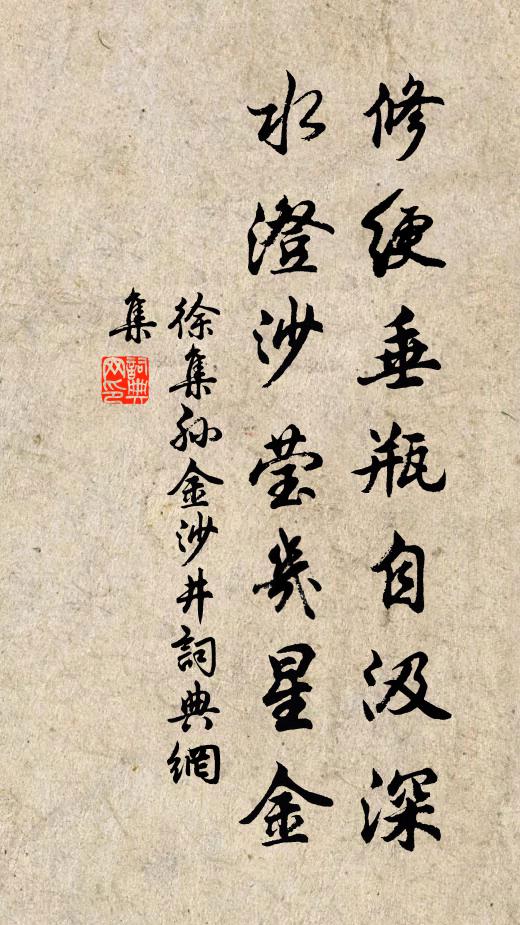 修綆垂瓶自汲深
水澄沙瑩幾星金
徐集孙金沙井詞典網
集
詞典
网印